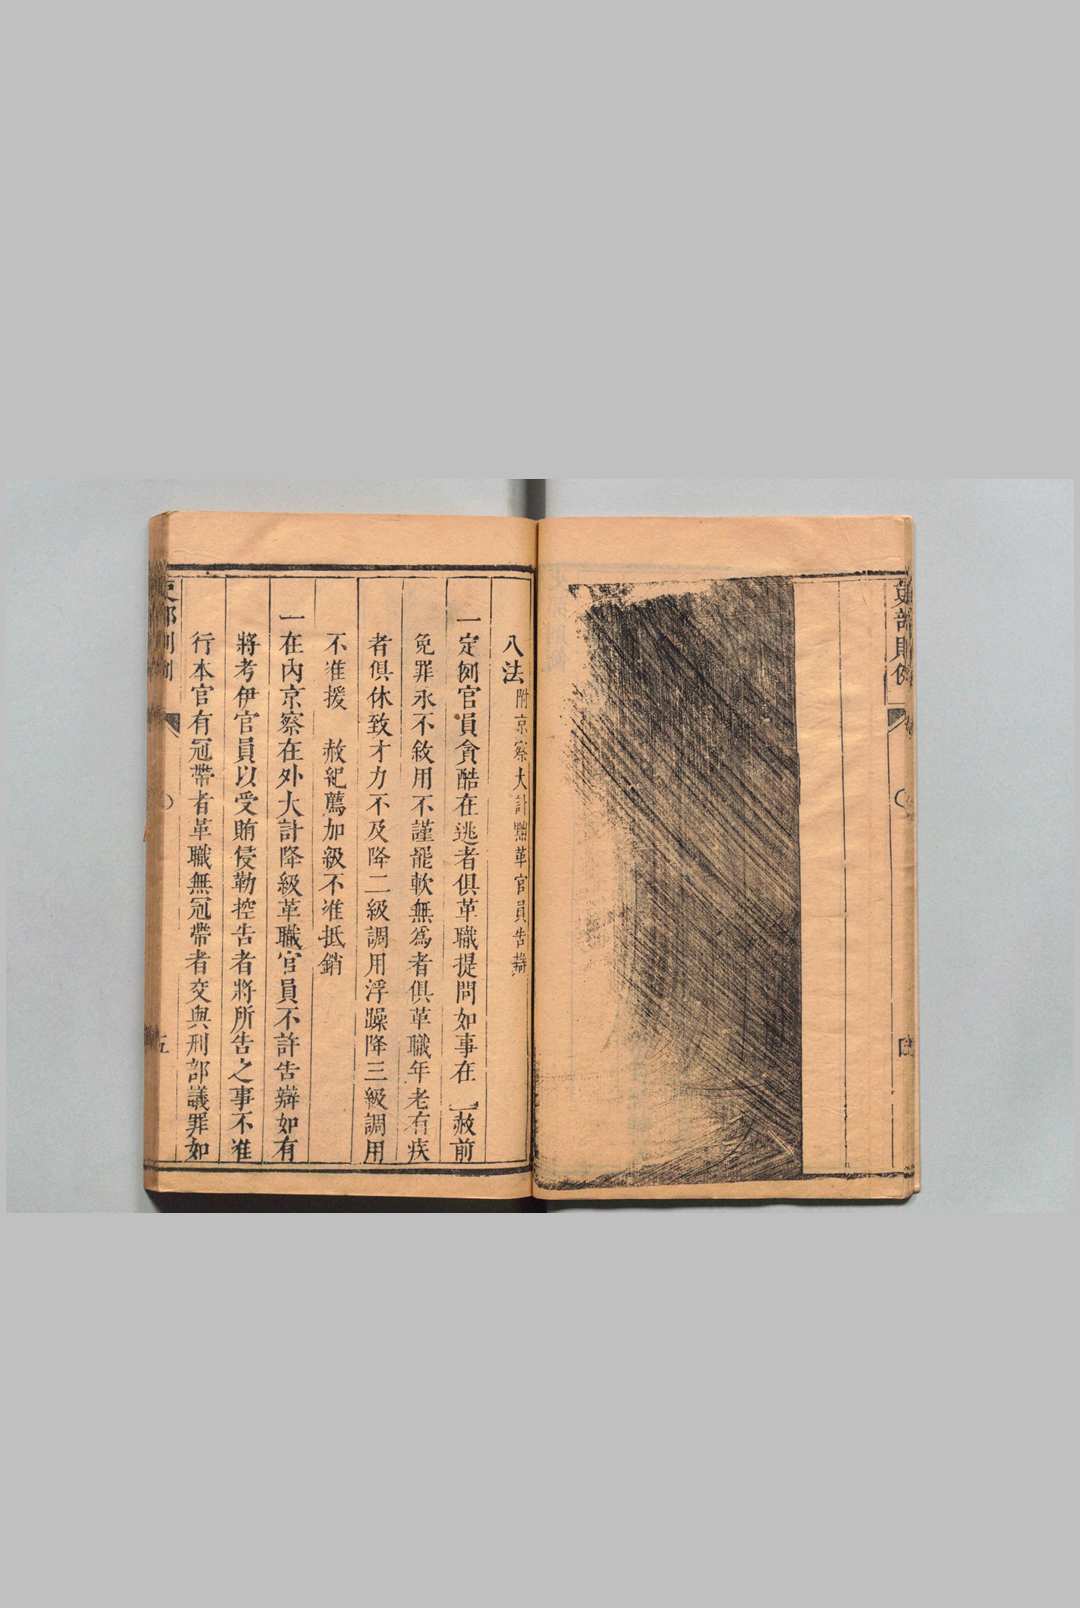 吏部則例
四
八法 附京察大計黜革官員告辯
一定例官員貪酷在逃者俱革職提問如事在 赦前
免罪永不敘用不謹罷軟無爲者俱革職年老有疾
者俱休致才力不及降二級調用浮躁降三級調用
不准援 赦紀薦加級不准抵銷
一在內京察在外大計降級革職官員不許告辯如有
將考伊官員以受賄侵勒控告者將所告之事不准
行本官有冠帶者革職無冠帶者交與刑部議罪如
吏部則例
五